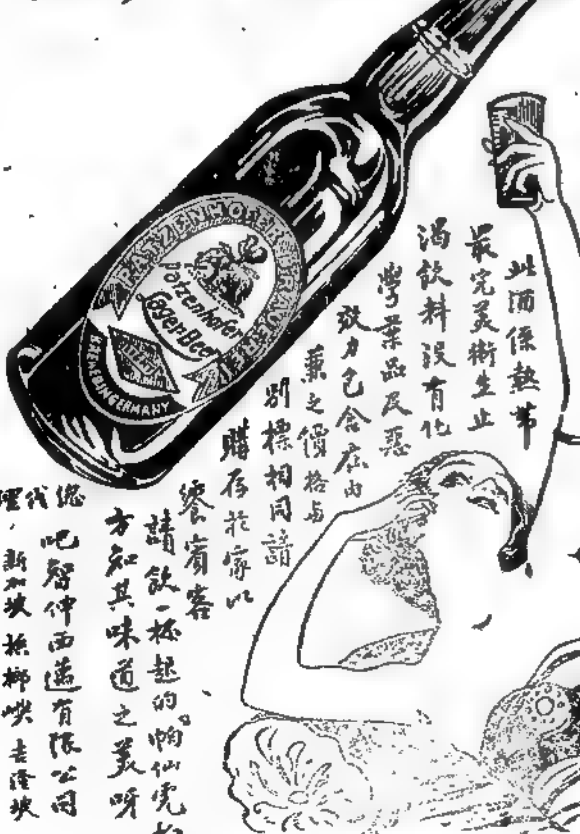 PATZENHOFER BRAUEREI
Patzenhofer
Lager Beer
BREWED IN GERMANY
此酒係熱帶
最完美衛生止
渴飲料沒有化
學藥品及惡
效力已含在內
兼之價格与
別標相同請
購存於家以
饗賓客
請飲一杯起的啪仙
方知其味道之美呀
總代理
有限公司
新加坡 檳榔嶼 吉隆坡